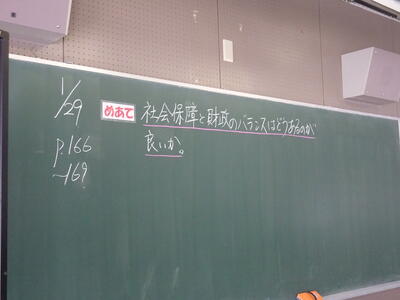 1/29
めあて 社会保障と財政のバランスはどうあるのが
良いか。
p.166
~169